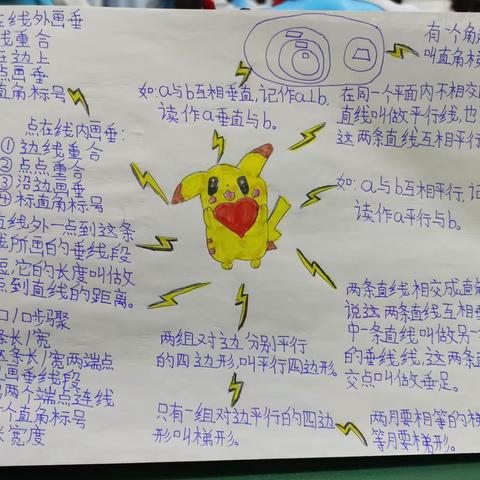 在线外画垂
线重合
在边上
点画垂
直角标号
点在线内画垂：
①边线重合
②点点重合
③沿边画垂
④标直角标号
直线外一点到这条
线所画的垂线段
短，它的长度叫做
点到直线的距离。
口/口步骤
条长/宽
这条长/宽两端点
画垂线段
两个端点连线
个直角标号
长宽度
如：a与b互相垂直，记作a⊥b，
读作a垂直与b。
两组对边分别平行
的四边形，叫平行四边形。
只有一组对边平行的四边
形叫梯形。
有一个角
叫直角梯
在同一个平面内不相交
直线叫做平行线，也
这两条直线互相平行
如：a与b互相平行，记
读作a平行与b。
两条直线相交成直角
说这两条直线互相垂
中一条直线叫做另一
的垂线线，这两条直
交点叫做垂足。
两月要相等的梯
等月要梯形。